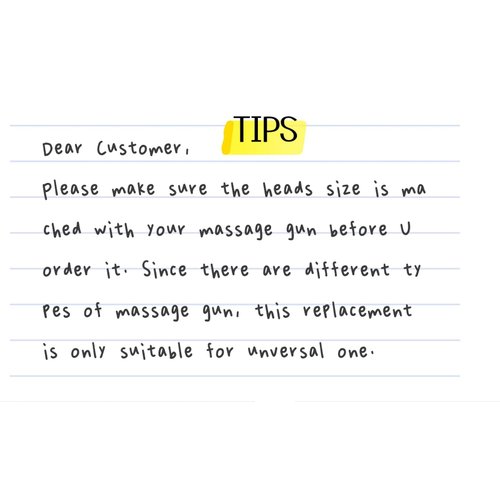 TIPS
Dear Customer,
Please make sure the heads size is ma
ched with your massage gun before U
order it. Since there are different ty
pes of massage gun, this replacement
is only suitable for unversal one.